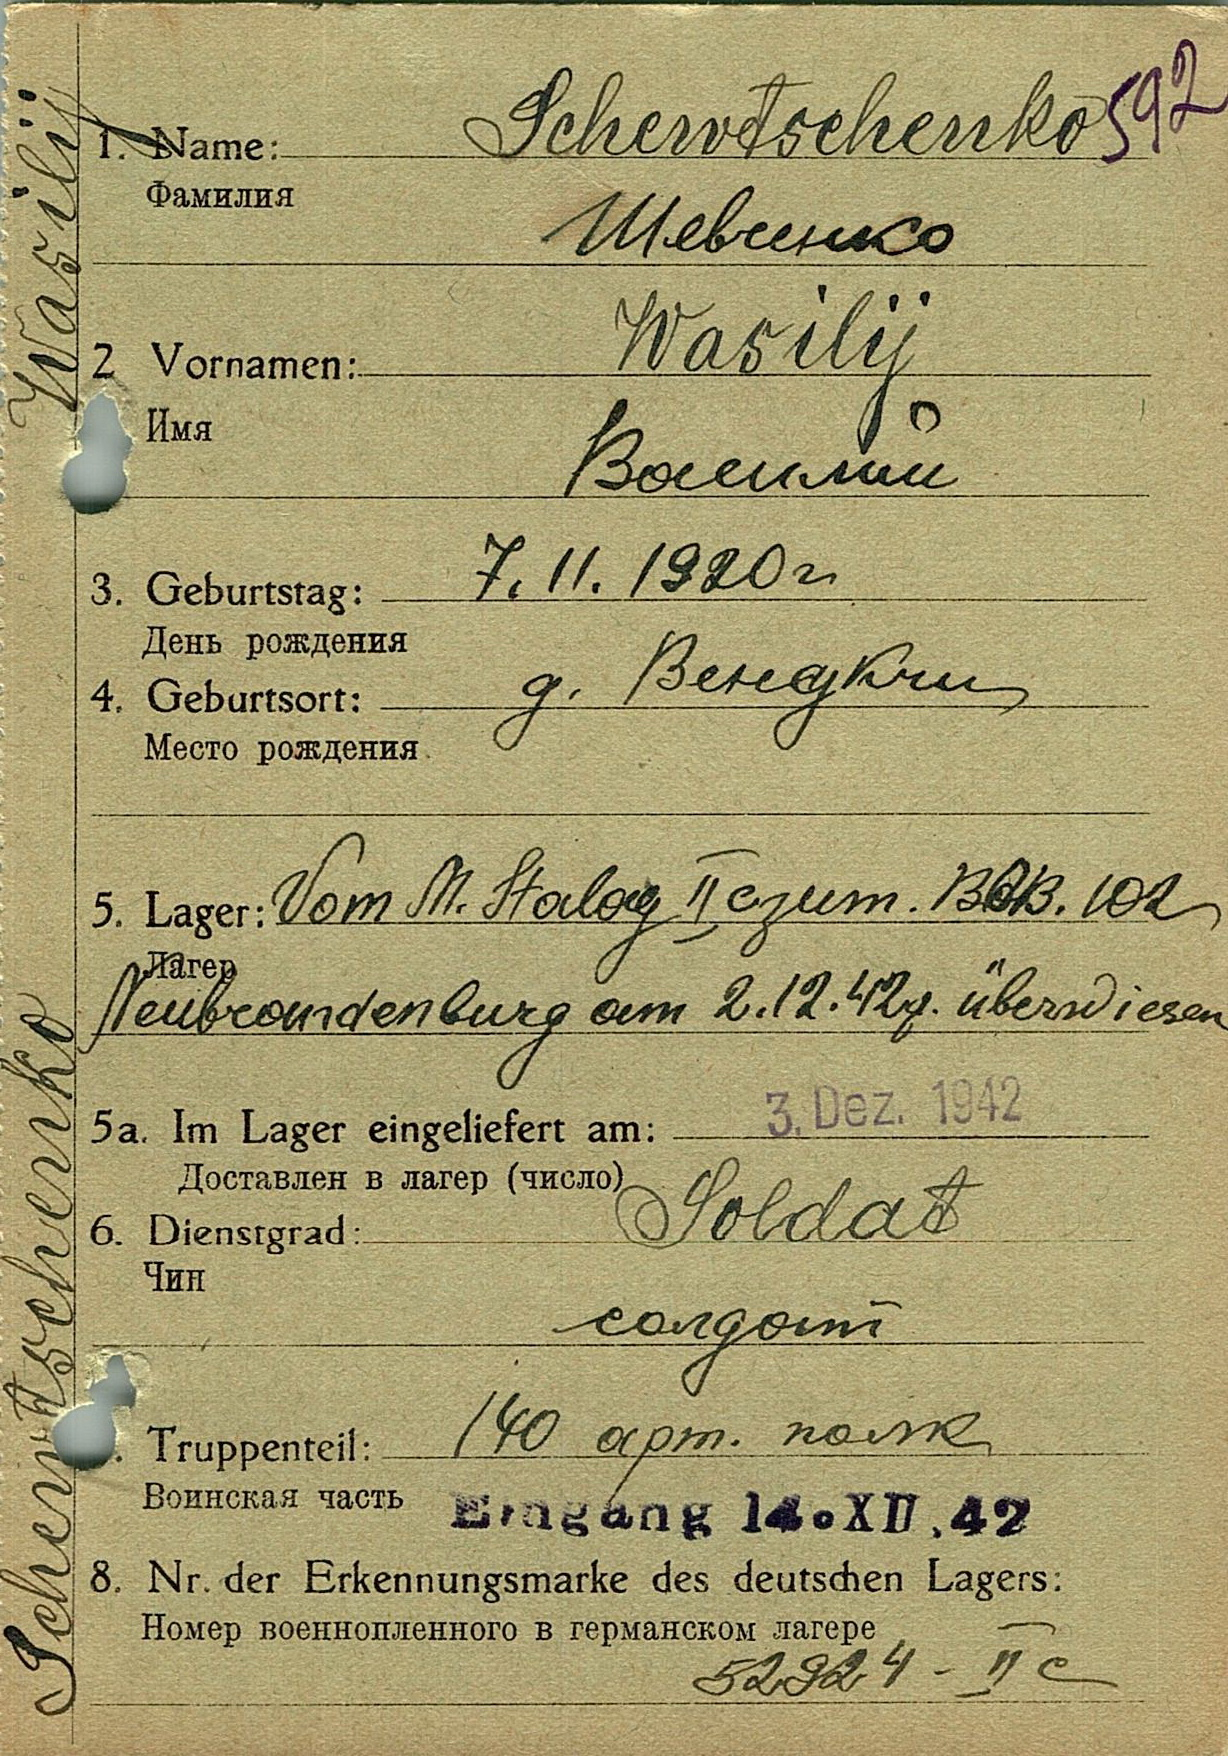 592
1. Name: Schewtschenko
Фамилия
Шевченко
2 Vornamen: Wasilij
Имя
Василий
3. Geburtstag: 7. 11. 1920 г
День рождения
4. Geburtsort: д.
Место рождения
5. Lager: Vom M. Stalag II c zum. 102
Лагер
Neubrandenburg am 2.12.42 g. überwiesen
5a. Im Lager eingeliefert am: 3. Dez. 1942
Доставлен в лагер (число)
6. Dienstgrad: Soldat
Чин
солдат
Truppenteil: 140 арт. полк
Воинская часть
Eingang 14. XII. 42
8. Nr. der Erkennungsmarke des deutschen Lagers:
Номер военнопленного в германском лагере
52924 - II c
Schewtschenko Wasilij